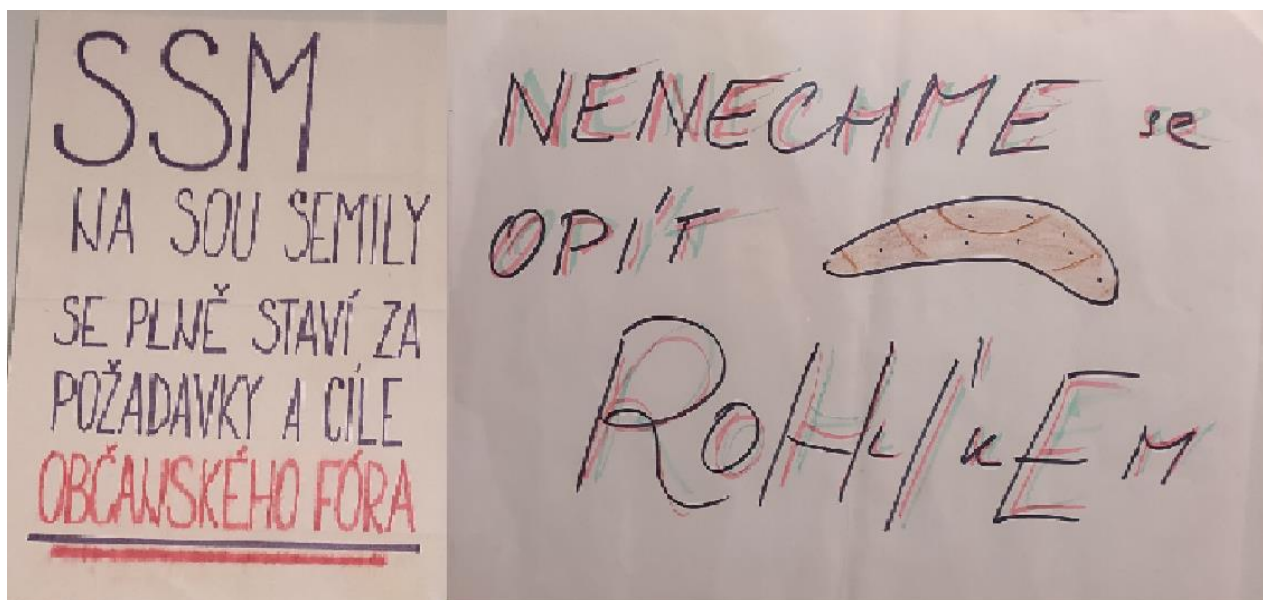 SSM
NA SOU SEMILY
SE PLNĚ STAVÍ ZA
POŽADAVKY A CÍLE
OBČANSKÉHO FÓRA
NENECHME se
OPÍT
ROHLÍKEM